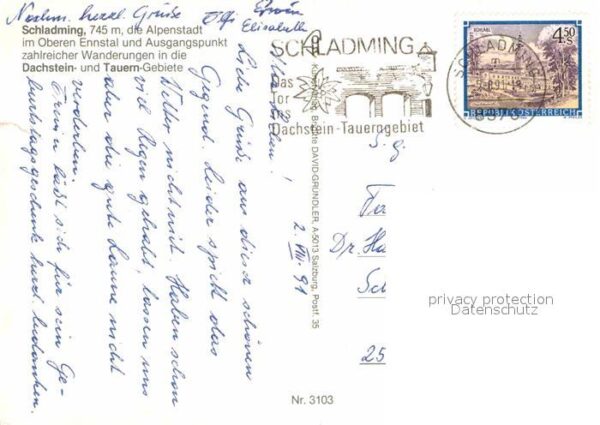 Nochm. herzl. Grüße
Elisabeth
Schladming, 745 m, die Alpenstadt
im Oberen Ennstal und Ausgangspunkt
zahlreicher Wanderungen in die
Dachstein- und Tauern-Gebiete
SCHLADMING
Das
Tor
zum
Dachstein-Tauerngebiet
SCHLADMING
4.50
S
REPUBLIK ÖSTERREICH
2. VIII. 91
Liebe Grüße aus dieser schönen
Gegend. Leider spielt das
Wetter nicht mit. Haben schon
viel Regen gehabt, lassen uns
aber die gute Laune nicht
verderben.
Erwin läßt sich für sein Ge-
burtstagsgeschenk herzl. bedanken.
DAVID-GRÜNDLER, A-5013 Salzburg, Postf. 35
S. g.
Dr.
25
privacy protection
Datenschutz
Nr. 3103